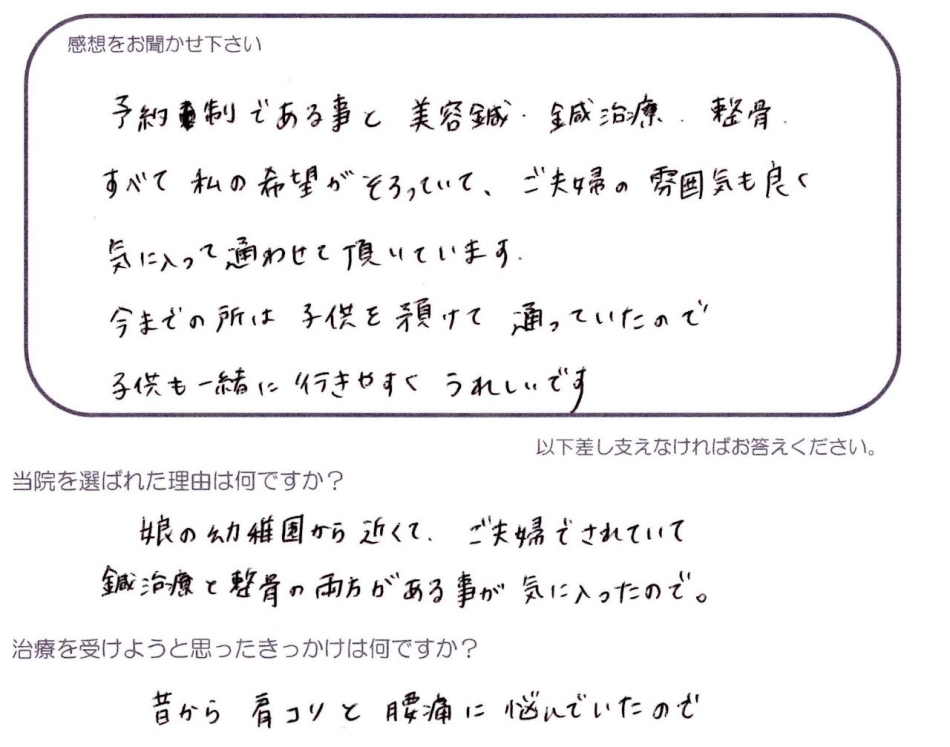 感想をお聞かせ下さい
予約制である事と 美容鍼・鍼治療・整骨.
すべて 私の希望がそろっていて、ご夫婦の 雰囲気も良く
気に入って通わせて頂いています.
今までの所は 子供を預けて 通っていたので
子供も一緒に行きやすく うれしいです
以下差し支えなければお答えください。
当院を選ばれた理由は何ですか？
娘の幼稚園から近くて、ご夫婦でされていて
鍼治療と整骨の両方がある事が 気に入ったので。
治療を受けようと思ったきっかけは何ですか？
昔から 肩コリと 腰痛に 悩んでいたので